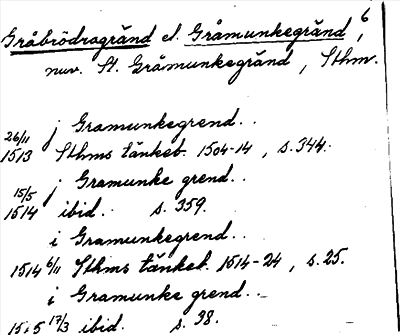 Gråbrödragränd el. Gråmunkegränd, 6
nuv. St. Gråmunkegränd, Sthm.
j Gramunkegrend..
26/11 1513 Sthms tänkeb. 1504-14, s. 344.
j Gramunke grend..
15/5 1514 ibid. s. 359.
i Gramunkegrend..
1514 6/11 Sthms tänkeb. 1514-24, s. 25.
i Gramunke grend..
1515 17/3 ibid. s. 38.